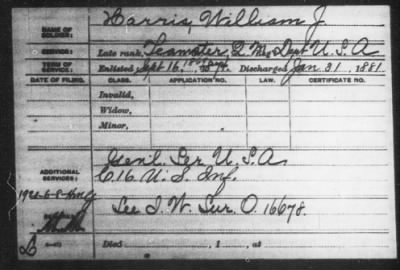 NAME OF SOLDIER: Harris, William J.
SERVICE: Late rank, Teamster, Q. M. Dept U.S.A.
TERM OF SERVICE: Enlisted Sept 16, Discharged Jan 31, 1881.
DATE OF FILING. CLASS. APPLICATION NO. LAW. CERTIFICATE NO.
Invalid,
Widow,
Minor,
ADDITIONAL SERVICES: Genl. Ser U.S.A.
C. 16 U.S. Inf.
See I. W. Sur. O. 16678.
Died , 1 , at